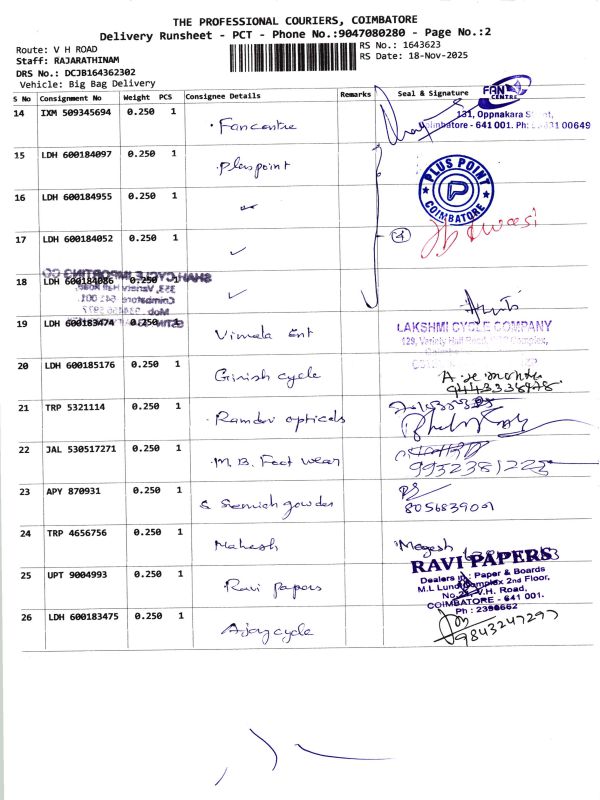 THE PROFESSIONAL COURIERS, COIMBATORE
Delivery Runsheet - PCT - Phone No.:9047080280 - Page No.:2
Route: V H ROAD
RS No.: 1643623
Staff: RAJARATHINAM
RS Date: 18-Nov-2025
DRS No.: DCJB164362302
Vehicle: Big Bag Delivery
S No Consignment No Weight PCS Consignee Details Remarks Seal & Signature
FAN CENTRE
14 IXM 509345694 0.250 1 Fancentre
131, Oppnakara Street,
Coimbatore - 641 001. Ph:
15 LDH 600184097 0.250 1 Pluspoint
PLUS POINT
COIMBATORE
16 LDH 600184955 0.250 1
17 LDH 600184052 0.250 1
18 LDH 600184086 0.250 1
SHAH CYCLE IMPORTING CO
353, Variety Hall Road,
Coimbatore - 641 001
19 LDH 600183474 0.250 1 Vimala Ent
LAKSHMI CYCLE COMPANY
129, Variety Hall Road,
20 LDH 600185176 0.250 1 Girish cycle
21 TRP 5321114 0.250 1 Ramdev opticals
22 JAL 530517271 0.250 1 M.B. Foot wear
23 APY 870931 0.250 1
8056839001
24 TRP 4656756 0.250 1 Mahesh
Magesh
RAVI PAPERS
Dealers in: Paper & Boards
M.L Lund Complex 2nd Floor,
V.H. Road,
COIMBATORE - 641 001.
Ph : 2396662
25 UPT 9004993 0.250 1 Ravi papers
26 LDH 600183475 0.250 1 Ajay cycle
9843247297